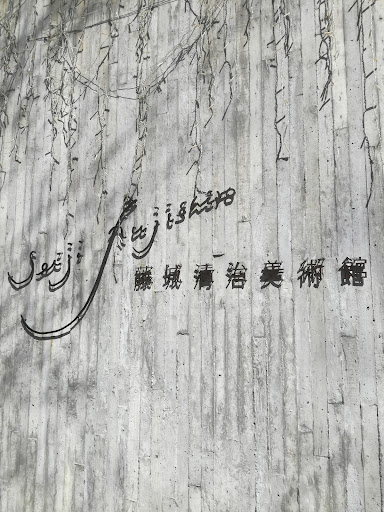 Seiji Fujishiro
藤城清治美術館